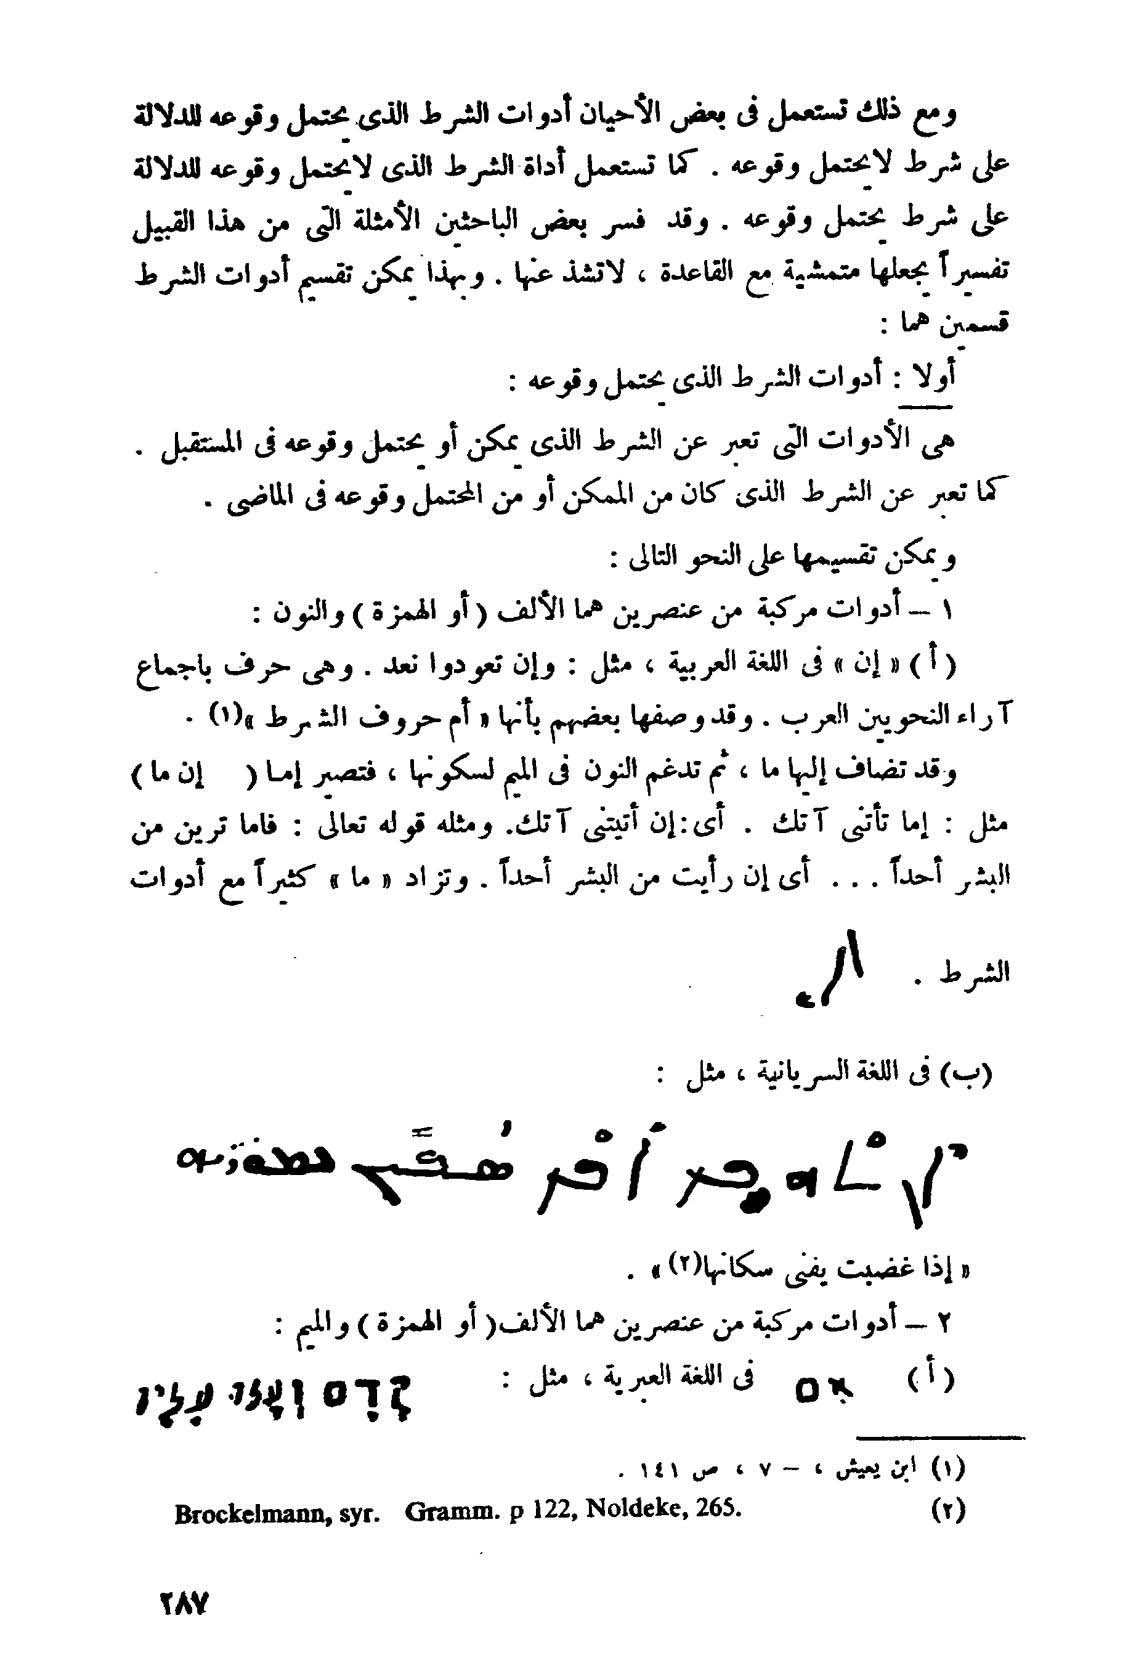 ومع ذلك تستعمل فى بعض الأحيان أدوات الشرط الذى يحتمل وقوعه للدلالة
على شرط لايحتمل وقوعه . كما تستعمل أداة الشرط الذى لايحتمل وقوعه للدلالة
على شرط يحتمل وقوعه . وقد فسر بعض الباحثين الأمثلة التى من هذا القبيل
تفسيراً يجعلها متمشية مع القاعدة ، لاتشذ عنها . وبهذا يمكن تقسيم أدوات الشرط
قسمين هما :
أولا : أدوات الشرط الذى يحتمل وقوعه :
هى الأدوات التى تعبر عن الشرط الذى يمكن أو يحتمل وقوعه فى المستقبل .
كما تعبر عن الشرط الذى كان من الممكن أو من المحتمل وقوعه فى الماضى .
ويمكن تقسيمها على النحو التالى :
١ – أدوات مركبة من عنصرين هما الألف ( أو الهمزة ) والنون :
( أ ) « إن » فى اللغة العربية ، مثل : وإن تعودوا نعد . وهى حرف باجماع
آراء النحويين العرب . وقد وصفها بعضهم بأنها « أم حروف الشرط »(١) .
وقد تضاف إليها ما ، ثم تدغم النون فى الميم لسكونها ، فتصير إما ( إن ما )
مثل : إما تأتنى آتك . أى : إن أتيتنى آتك. ومثله قوله تعالى : فاما ترين من
البشر أحداً . . . أى إن رأيت من البشر أحداً . وتزاد « ما » كثيراً مع أدوات
الشرط .
(ب) فى اللغة السريانية ، مثل :
« إذا غضبت يفنى سكانها(٢) » .
٢ – أدوات مركبة من عنصرين هما الألف ( أو الهمزة ) والميم :
( أ ) אם فى اللغة العبرية ، مثل :
(١) ابن يعيش ، – ٧ ، ص ١٤١ .
(٢) Brockelmann, syr. Gramm. p 122, Noldeke, 265.
٢٨٧